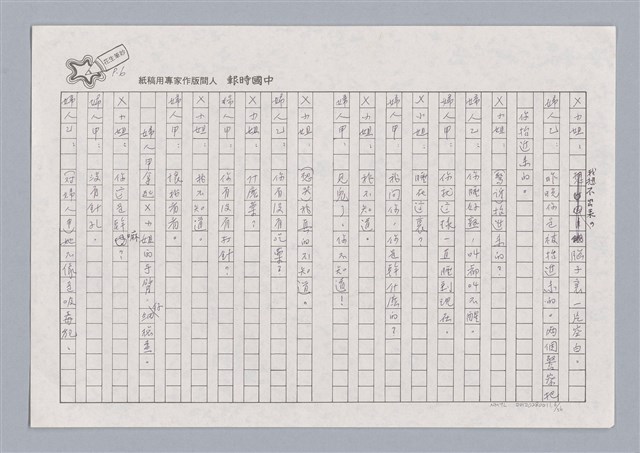 中國時報 人間版作家專用稿紙
P.6
X小姐：我想不出來，腦子裏一片空白。
婦人乙：昨晚你是被抬進來的。兩個警察把
你抬進來的。
X小姐：警察抬進來的？
婦人乙：你睡好熟，叫都叫不醒。
婦人甲：你就這樣一直睡到現在。
X小姐：睡在這裏？
婦人甲：我問你，你是幹什麼的？
X小姐：我不知道。
婦人甲：見鬼了，你不知道！
X小姐：我真的不知道。
婦人乙：你有沒有吃藥？
X小姐：什麼藥？
婦人甲：你有沒有打針？
X小姐：我不知道。
婦人甲：讓我看看。
婦人甲拿起X小姐的手臂，仔細檢查。
X小姐：你這是幹嘛？
婦人甲：沒有針孔。
婦人乙：（對婦人甲）她不像是吸毒犯。